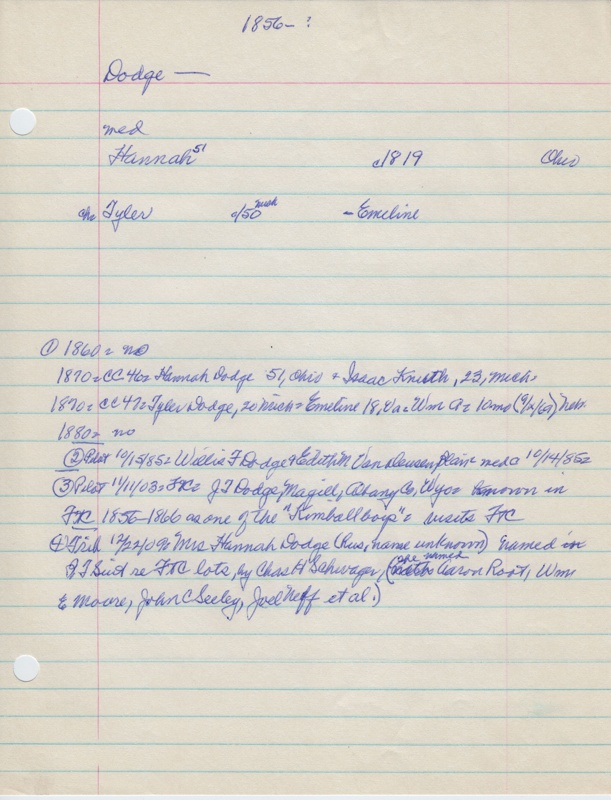 1856- ?
Dodge —
med
Hannah 51 c/1819 Ohio
ch Tyler c/50 Mich - Emeline
① 1860= no
1870=CC 46= Hannah Dodge 51, Ohio + Isaac 23, Mich=
1870= CC 47= Tyler Dodge, 20 Mich= Emeline 18, Va= Wm A= 10mo (9/2/69) Nebr.
1880= no
② Pilot 10/15/85= Willis F Dodge & Edith M Van Deusen, Plain= med @ 10/14/85=
③ Pilot 11/11/03= FtC= J T Dodge, Magill, Albany Co, Wyo= known in
FtC 1856-1866 as one of the "Kimball boys"= visits FtC
④ Trib 12/24/09= Mrs Hannah Dodge (hus, name unknown) named in
Q T Suit re FtC lots, by Chas H Schwager, (also named Aaron Root, Wm
E Moore, John C Seeley, Joel Neff et al.)